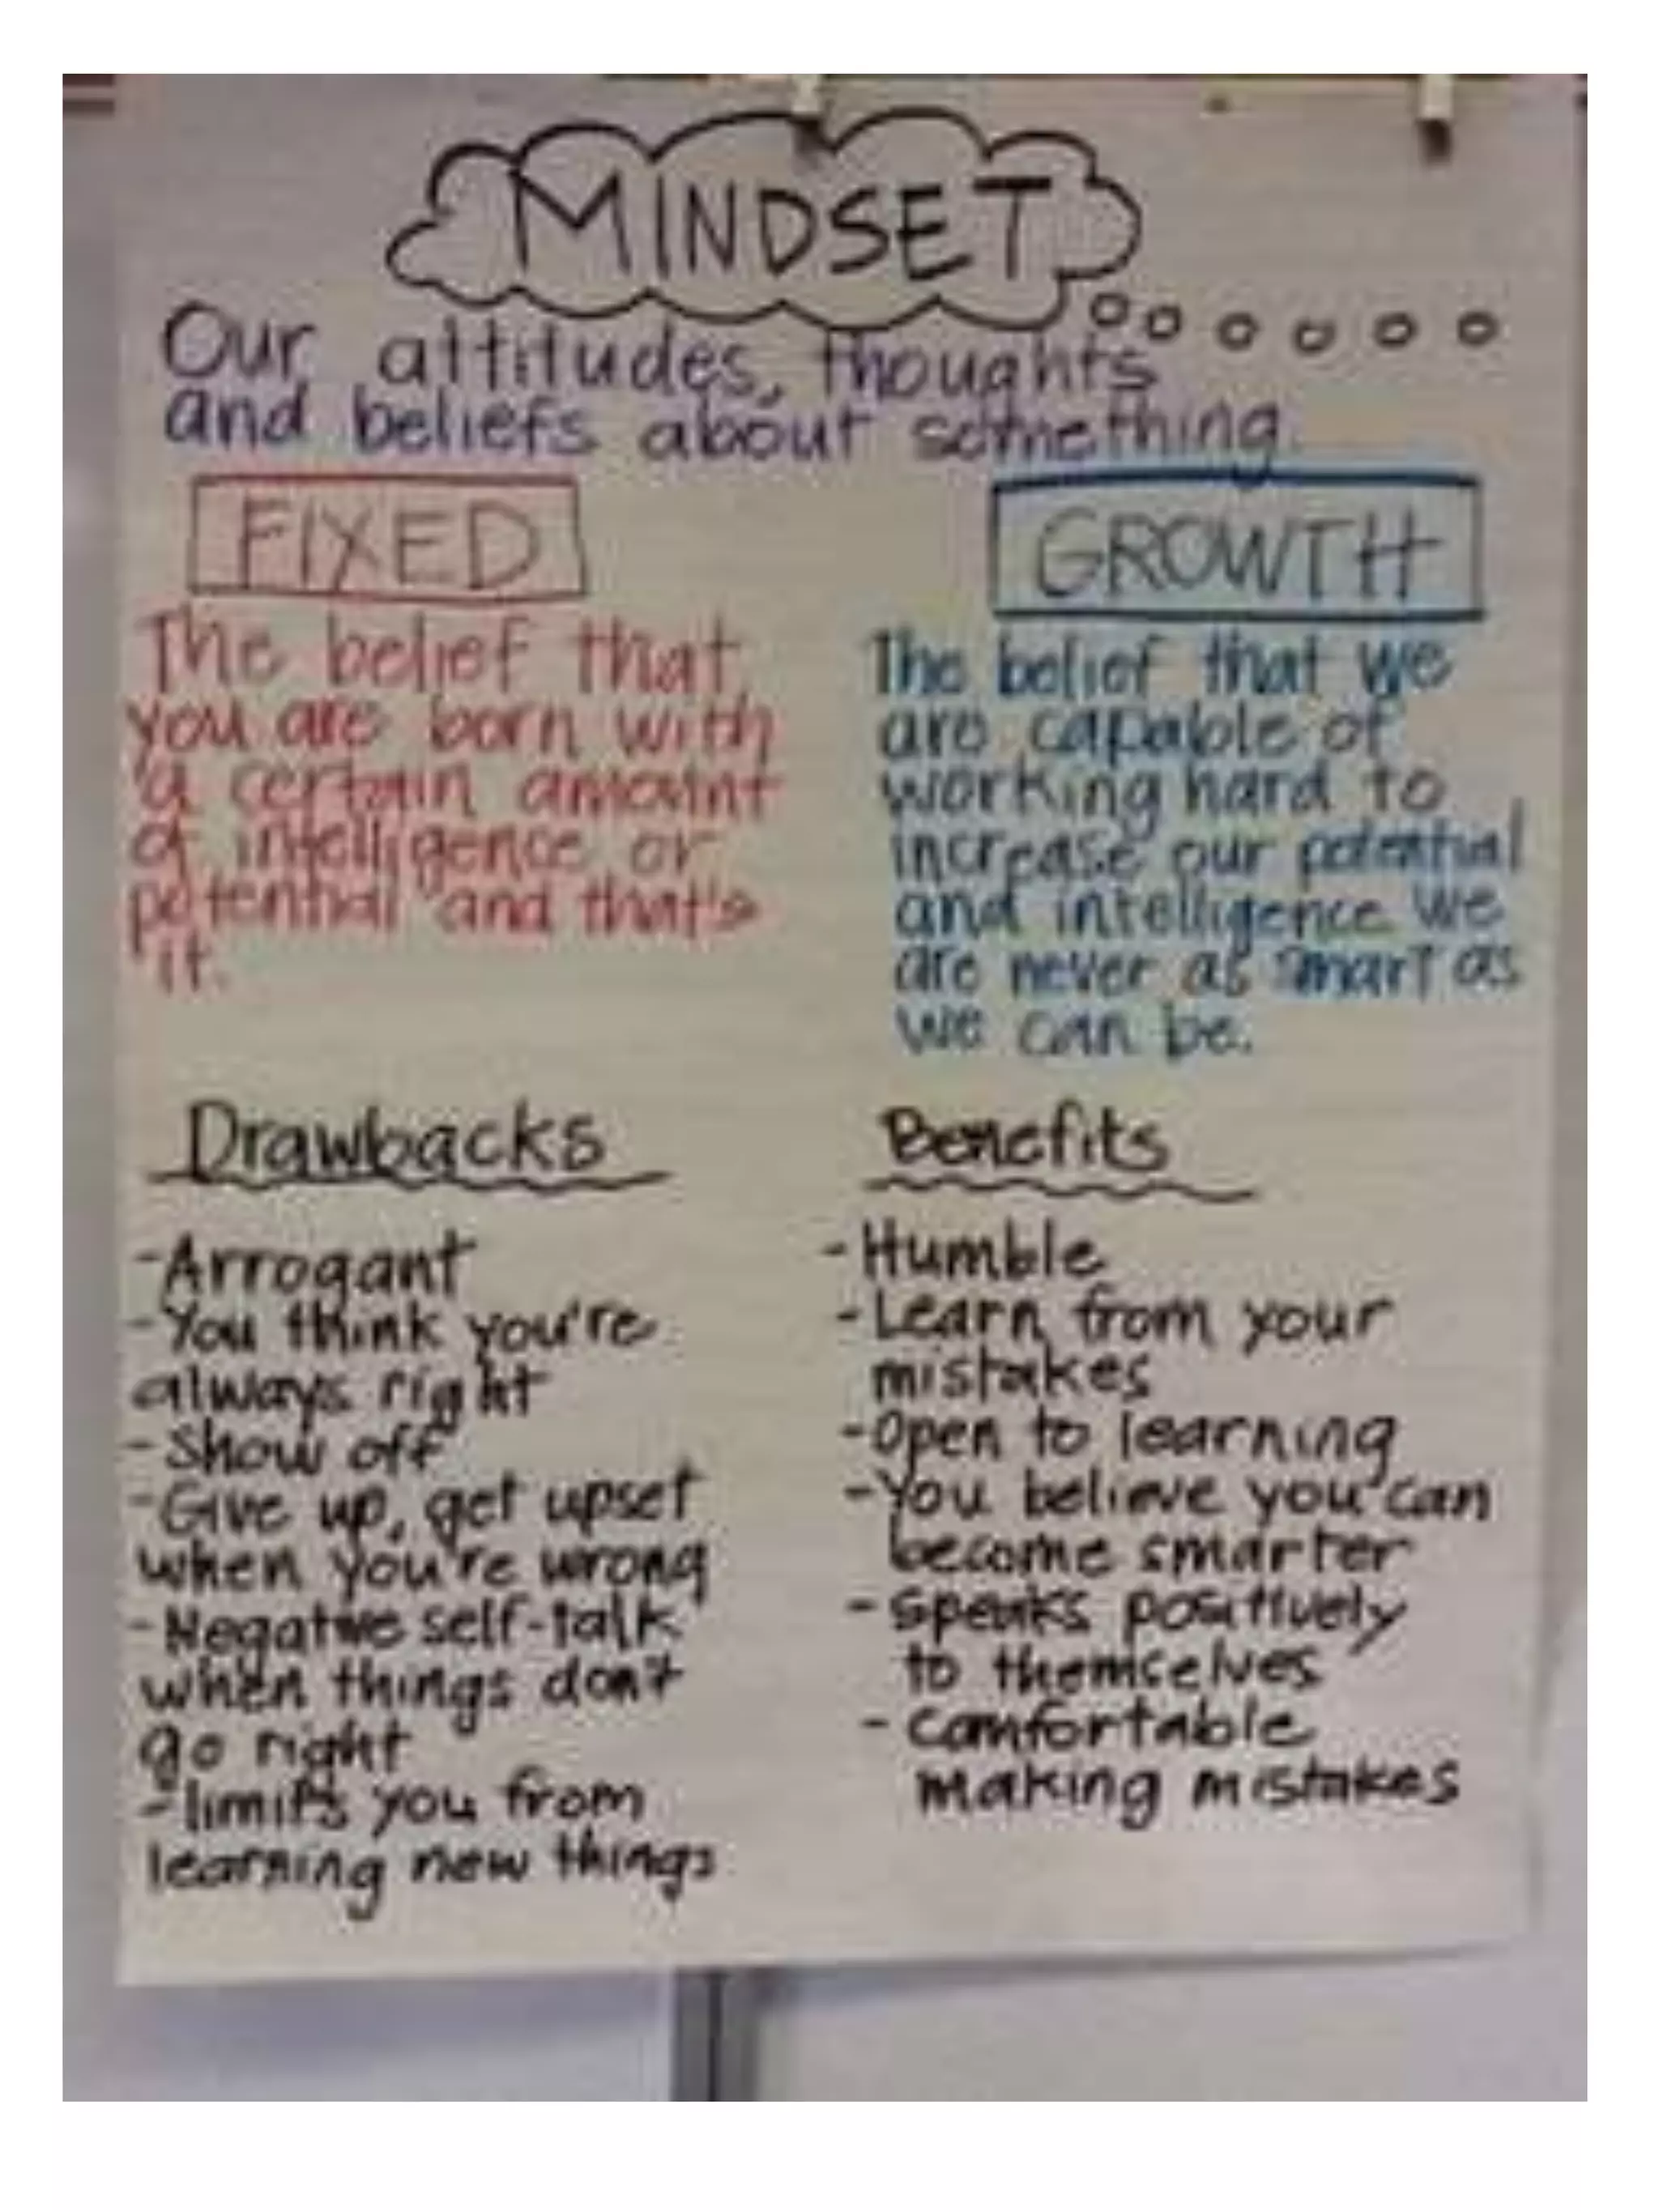 MINDSET
Our attitudes, thoughts
and beliefs about something.
FIXED
The belief that
you are born with
a certain amount
of intelligence or
potential and that's
it.
GROWTH
The belief that we
are capable of
working hard to
increase our potential
and intelligence we
are never as smart as
we can be.
Drawbacks
-Arrogant
-You think you're
always right
-Show off
-Give up, get upset
when you're wrong
-Negative self-talk
when things don't
go right
-limits you from
learning new things
Benefits
-Humble
-Learn from your
mistakes
-Open to learning
-You believe you can
become smarter
-speaks positively
to themselves
-comfortable
making mistakes